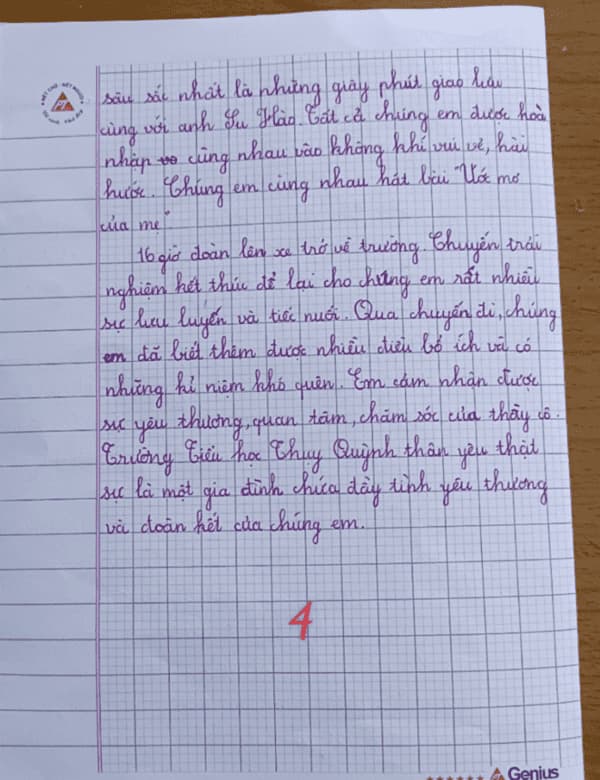 sâu sắc nhất là những giây phút giao lưu
cùng với anh Su Hào. Tất cả chúng em được hoà
nhập cùng nhau vào không khí vui vẻ, hài
hước. Chúng em cùng nhau hát bài "Ước mơ
của mẹ"
16 giờ đoàn lên xe trở về trường. Chuyến trải
nghiệm kết thúc để lại cho chúng em rất nhiều
sự lưu luyến và tiếc nuối. Qua chuyến đi, chúng
em đã biết thêm được nhiều điều bổ ích và có
những kỉ niệm khó quên. Em cảm nhận được
sự yêu thương, quan tâm, chăm sóc của thầy cô.
Trường Tiểu học Thụy Quỳnh thân yêu thật
sự là một gia đình chứa đầy tình yêu thương
và đoàn kết của chúng em.
4
Genius